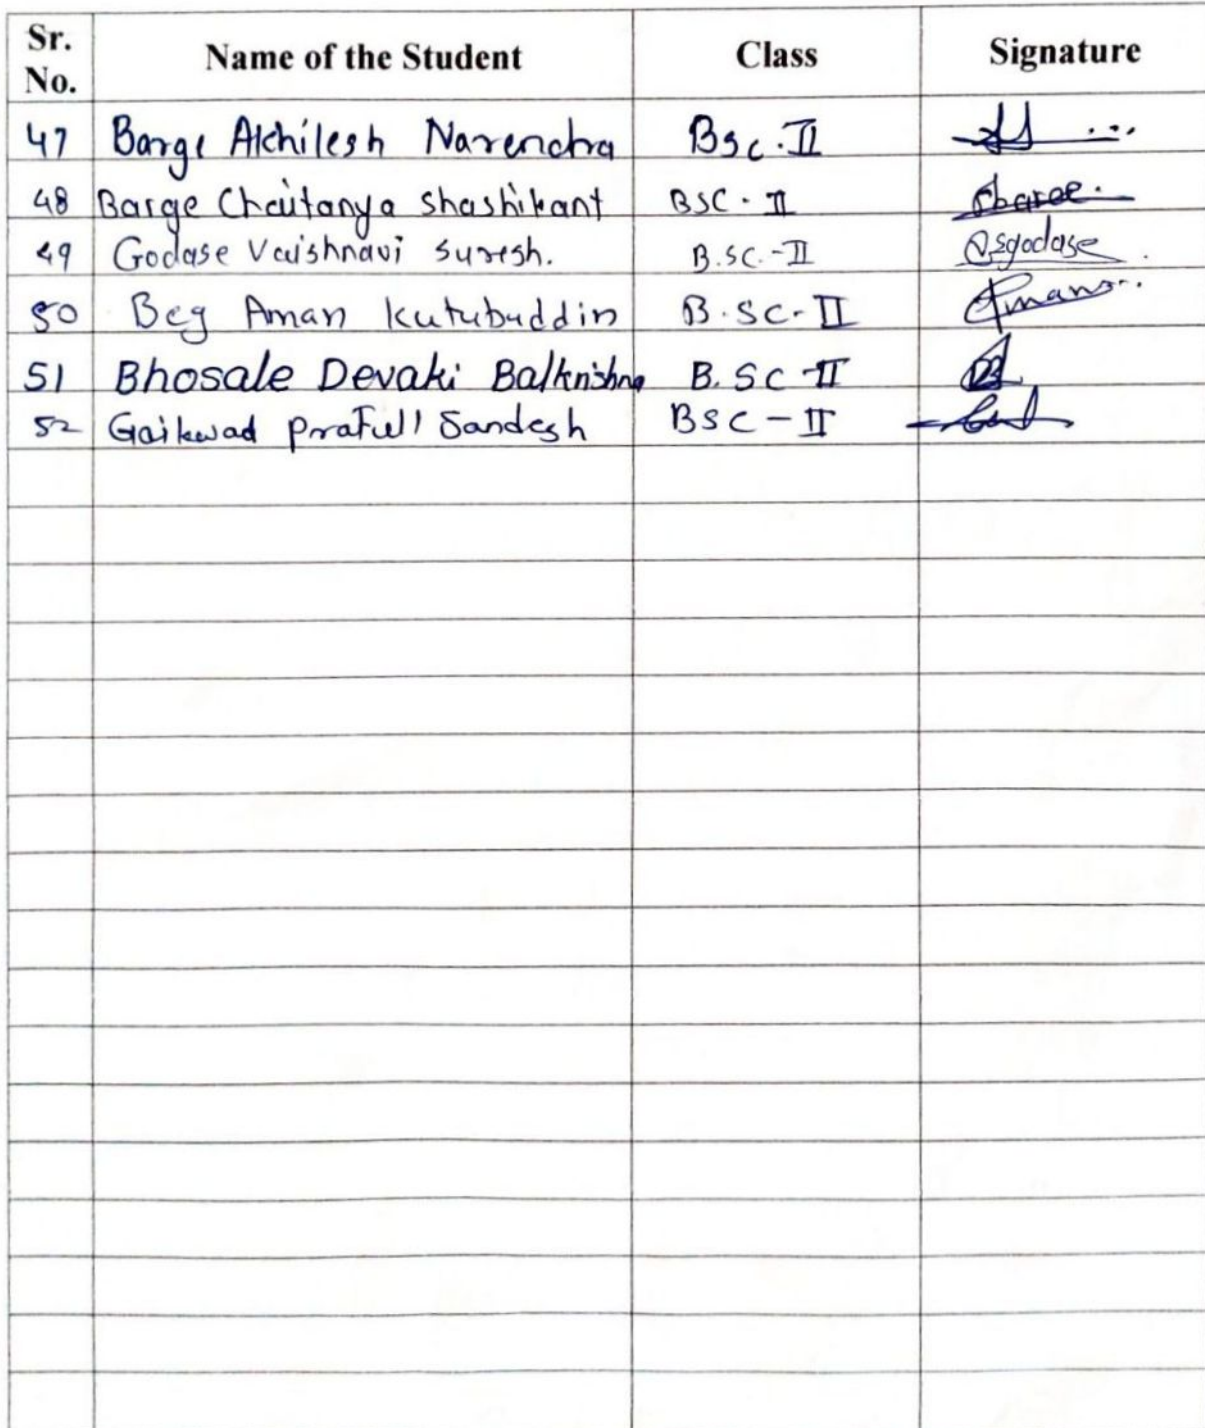 Sr. No. Name of the Student Class Signature
47 Barge Akhilesh Narendra Bsc.II
48 Barge Chaitanya Shashikant BSC.II
49 Godase Vaishnavi Suresh. B.SC.-II Vsgodase
50 Beg Aman Kutubuddin B.SC-II Amans..
51 Bhosale Devaki Balkrishna B.SC-II
52 Gaikwad Prafull Sandesh BSC-II